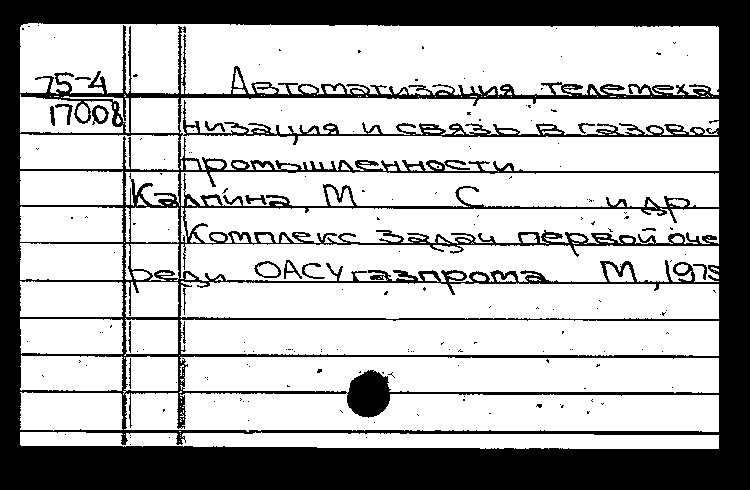 75-4
17008
Автоматизация, телемеха-
низация и связь в газовой
промышленности.
Калнина, М С и др.
Комплекс задач первой оче
реди ОАСУгазпрома М., 1975